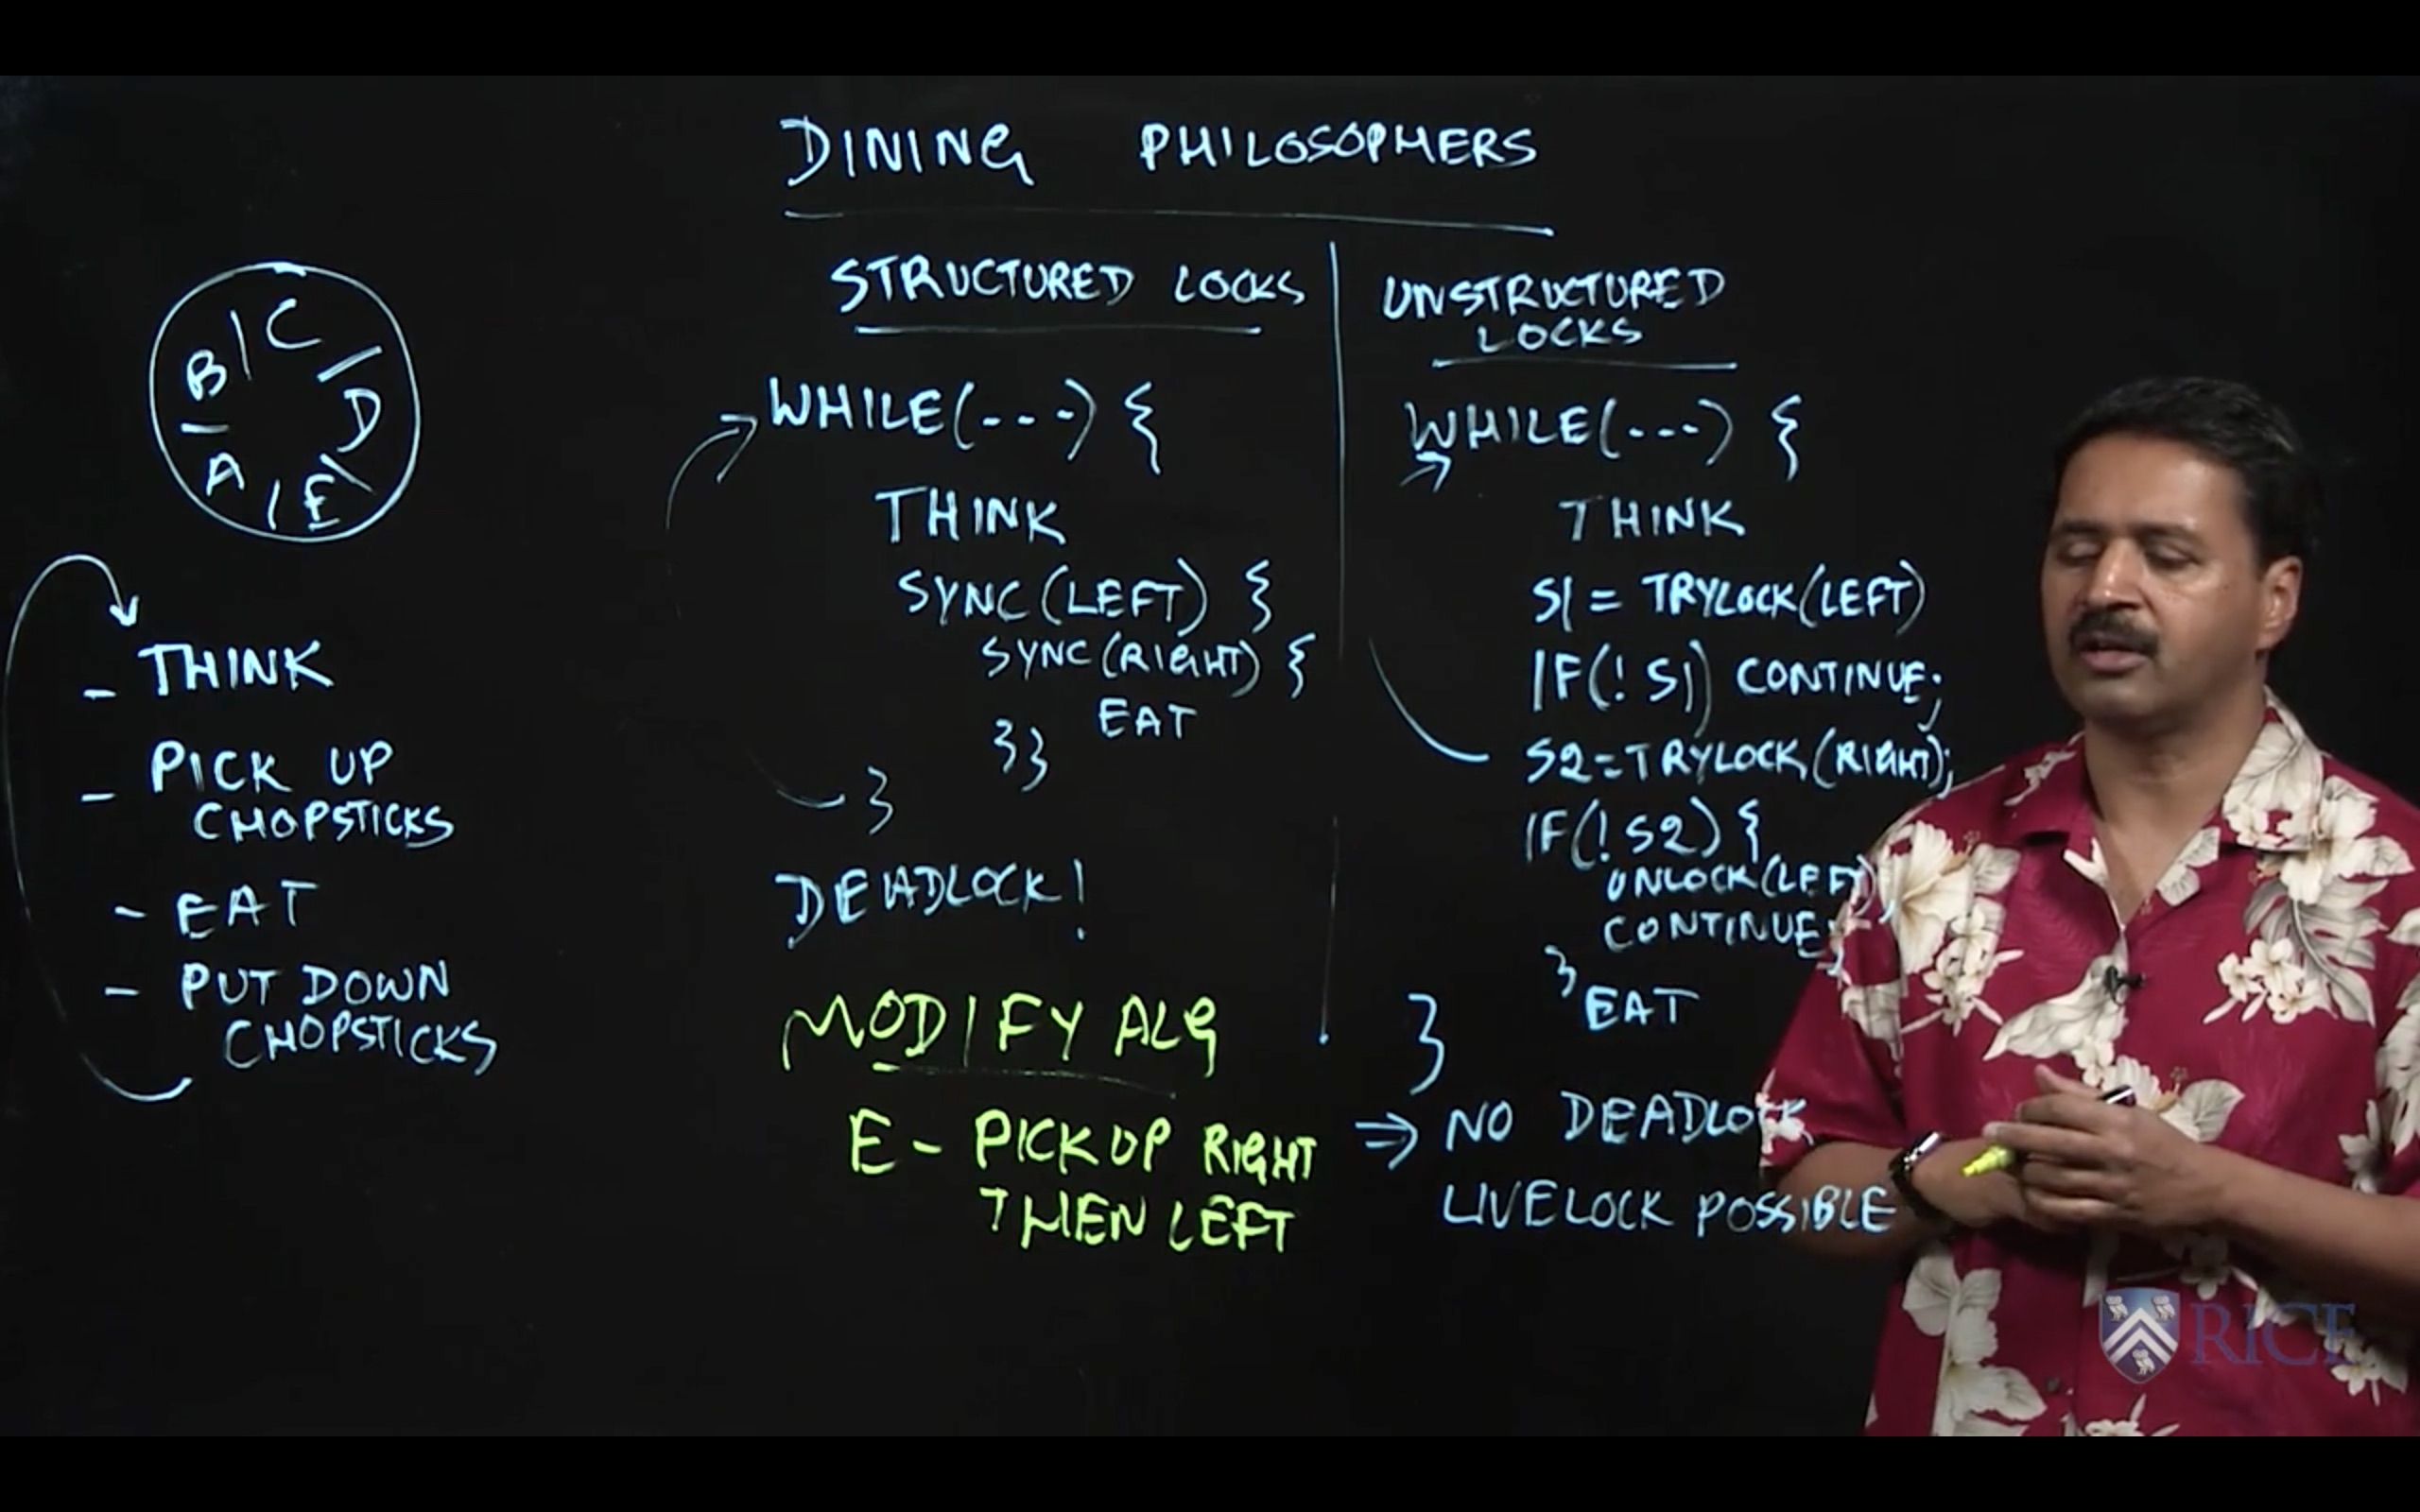 DINING PHILOSOPHERS
B | C
D
A | E
- THINK
- PICK UP
CHOPSTICKS
- EAT
- PUT DOWN
CHOPSTICKS
STRUCTURED LOCKS
WHILE(---) {
THINK
SYNC(LEFT) {
SYNC(RIGHT) {
EAT
}}
}
DEADLOCK!
MODIFY ALG
E - PICK UP RIGHT
THEN LEFT
UNSTRUCTURED
LOCKS
WHILE(---) {
THINK
S1 = TRYLOCK(LEFT)
IF(! S1) CONTINUE;
S2=TRYLOCK(RIGHT);
IF(! S2) {
UNLOCK(LEFT)
CONTINUE;
}
EAT
}
⇒ NO DEADLOCK
LIVELOCK POSSIBLE
RICE